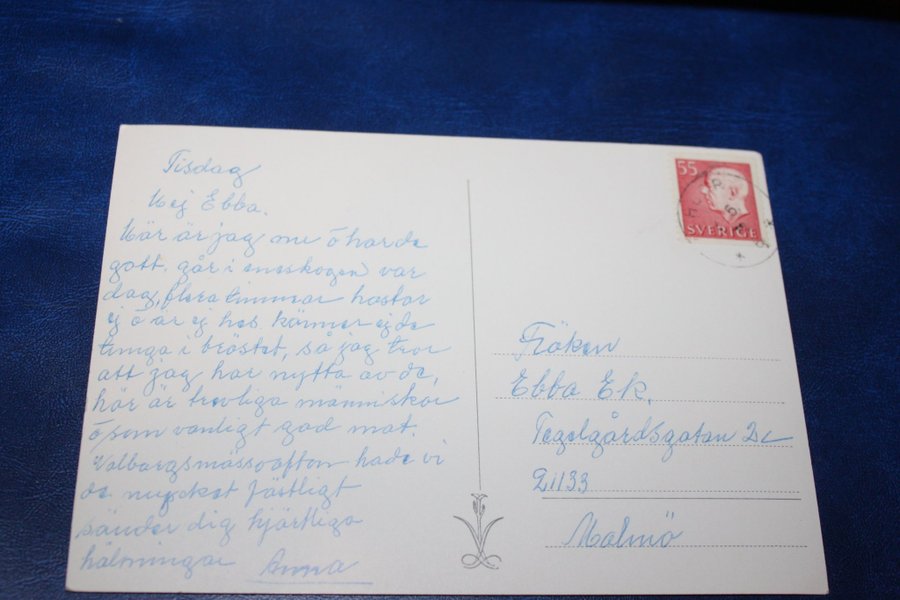 Tisdag
Hej Ebba.
Här är jag nu ö har de
gott. går i eneskogen var
dag, flera timmar hostar
ej ö är ej hes. känner ej de
tunga i bröstet, så jag tror
att jag har nytta av de,
här är trevliga människor
ö som vanligt god mat.
Valborgsmässoafton hade vi
de mycket fästligt
sänder dig hjärtliga
hälsningar Anna
55
SVERIGE
Fröken
Ebba Ek.
Tegelgårdsgatan 2c
21133
Malmö